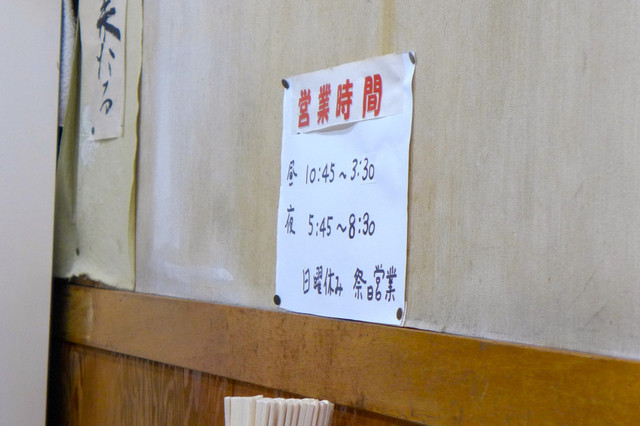 営業時間
昼 10:45~3:30
夜 5:45~8:30
日曜休み 祭日営業
来たる